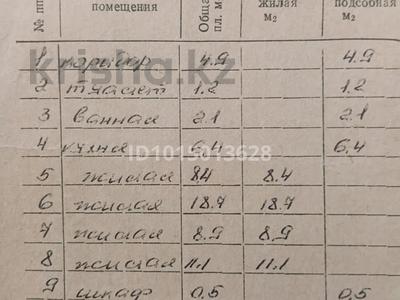 № пп помещения Общая пл. м² жилая м² подсобная м²
1 коридор 4.9 4.9
2 туалет 1.2 1.2
3 ванная 2.1 2.1
krisha.kz
4 кухня 6.4 6.4
ID1015013628
5 жилая 8.4 8.4
6 жилая 18.7 18.7
7 жилая 8.9 8.9
8 жилая 11.1 11.1
9 шкаф 0.5 0.5